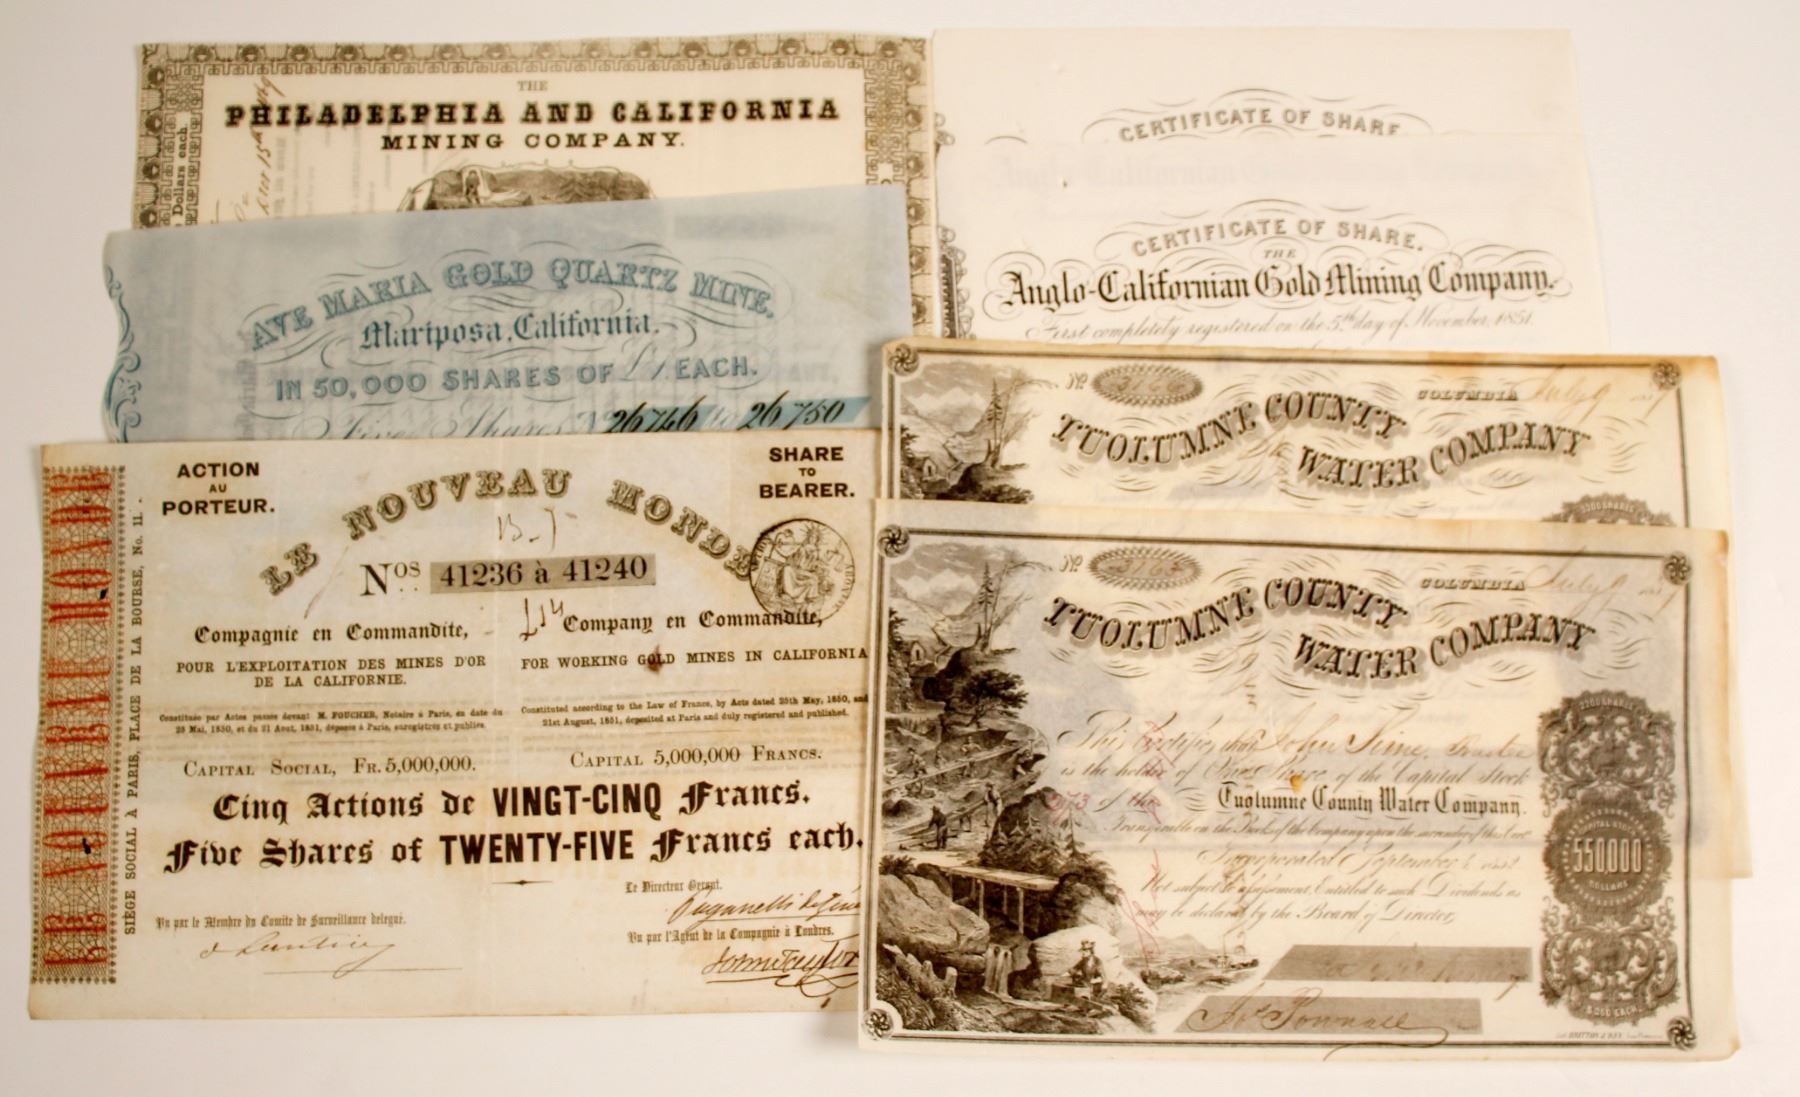 THE
PHILADELPHIA AND CALIFORNIA
MINING COMPANY.
Dollars each.
AVE MARIA GOLD QUARTZ MINE.
Mariposa, California.
IN 50,000 SHARES OF £1 EACH.
Five Shares No 26746 to 26750
CERTIFICATE OF SHARE
CERTIFICATE OF SHARE.
THE
Anglo-Californian Gold Mining Company.
First completely registered on the 5th day of November, 1851.
LE NOUVEAU MONDE
SIÈGE SOCIAL À PARIS, PLACE DE LA BOURSE, No. 11.
ACTION
AU
PORTEUR.
SHARE
TO
BEARER.
LE NOUVEAU MONDE
Nos 41236 à 41240
Compagnie en Commandite,
POUR L'EXPLOITATION DES MINES D'OR
DE LA CALIFORNIE.
Constituée par Actes passés devant M. FOUCHER, Notaire à Paris, en date du
25 Mai, 1850, et du 21 Aout, 1851, déposés à Paris, enregistrés et publiés.
Company en Commandite,
FOR WORKING GOLD MINES IN CALIFORNIA
Constituted according to the Law of France, by Acts dated 25th May, 1850, and
21st August, 1851, deposited at Paris and duly registered and published.
CAPITAL SOCIAL, FR. 5,000,000.
CAPITAL 5,000,000 FRANCS.
Cinq Actions de VINGT-CINQ Francs.
Five Shares of TWENTY-FIVE Francs each.
Le Directeur Gerant.
Vu par le Membre du Comite de Surveillance delegué.
Vu par l'Agent de la Compagnie à Londres.
No 3166
COLUMBIA July 9
TUOLUMNE COUNTY
WATER COMPANY
2200 SHARES
No 3165
COLUMBIA July 9
TUOLUMNE COUNTY
WATER COMPANY
This Certifies that John Sime, Trustee
is the holder of One Share of the Capital Stock
of the Tuolumne County Water Company.
Transferable on the Books of the Company upon the surrender of this Cert
Incorporated September 1852
Not subject to assessment, Entitled to such Dividends as
may be declared by the Board of Directors
2200 SHARES
CAPITAL STOCK
550,000
DOLLARS
Lith. BRITTON & REY, San Francisco